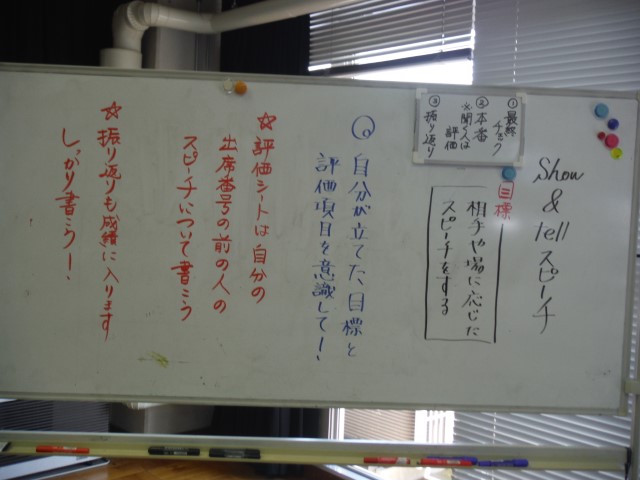 Show & tell スピーチ
①最終チェック
②本番
※聞く人は評価
③振り返り
目標
相手や場に応じた
スピーチをする
◎自分が立てた、目標と
評価項目を意識して!
☆評価シートは自分の
出席番号の前の人の
スピーチについて書こう
☆振り返りも成績に入ります
しっかり書こう!